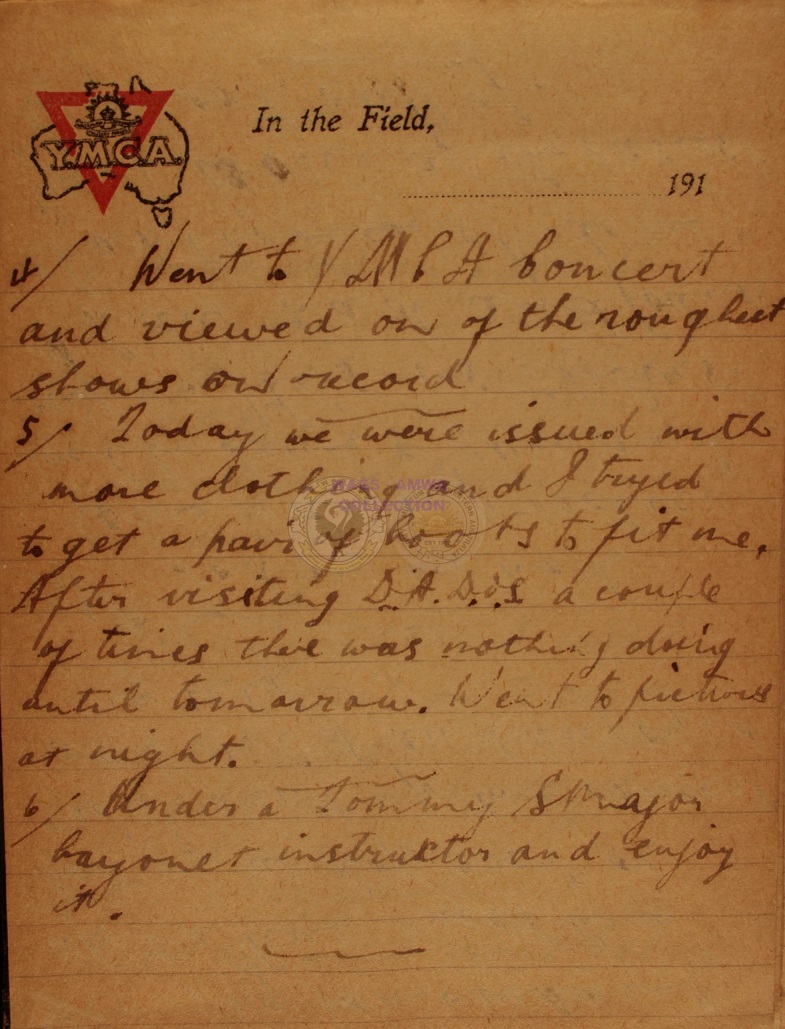 Y.M.C.A.
In the Field,
191
4/ Went to YMCA Concert
and viewed on of the roughest
shows on record
5/ Today we were issued with
more clothing and I tryed
WAGS AMWA
COLLECTION
to get a pair of boots to fit me.
After visiting D.A.D.O.S a couple
of times there was nothing doing
until tomorrow. Went to pictures
at night.
6/ Under a Tommy SMajor
bayonet instructor and enjoy
it.